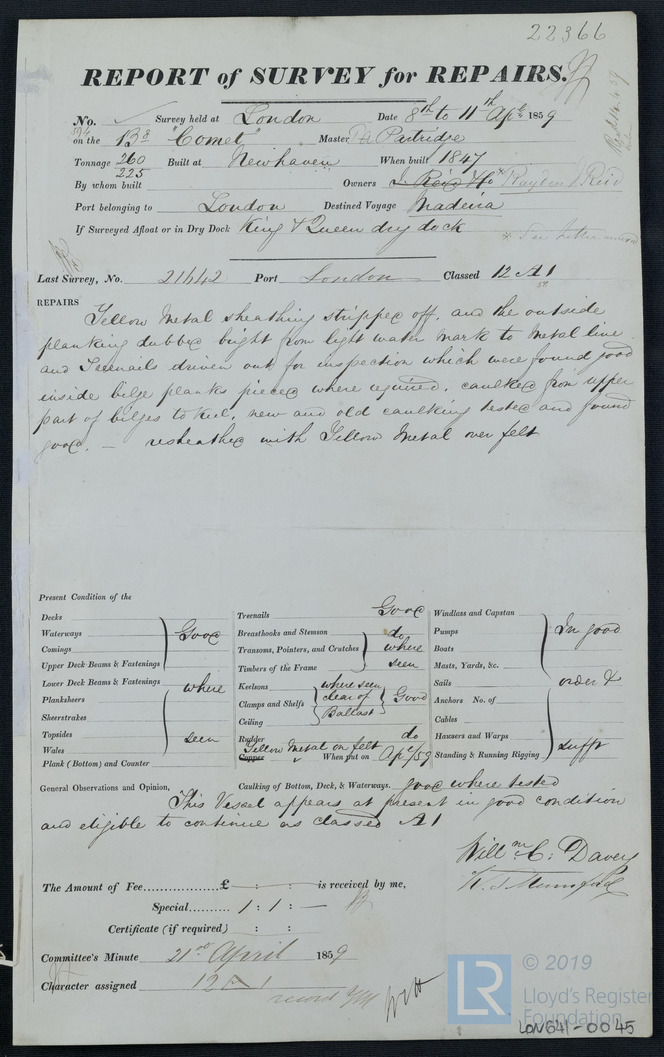 22366
REPORT of SURVEY for REPAIRS.
No. Survey held at London Date 8th to 11th Apl 1859
on the Bg "Comet" Master Partridge
Tonnage 260 Built at Newhaven When built 1847
225
By whom built Owners J. Reid & Co * Royden & Reid
Port belonging to London Destined Voyage Madeira
If Surveyed Afloat or in Dry Dock King & Queen dry dock
* See letter annexed
Last Survey, No. 21442 Port London Classed 12 A 1
REPAIRS Yellow Metal sheathing stripped off, and the outside
planking dubbed bright from light water mark to Metal line
and Treenails driven out for inspection which were found good
inside bilge planks pieced where required, caulked from upper
part of bilges to keel, new and old caulking tested and found
good. — resheathed with Yellow Metal over felt
Present Condition of the
Decks
Waterways Good
Comings
Upper Deck Beams & Fastenings
Lower Deck Beams & Fastenings where
Planksheers
Sheerstrakes
Topsides seen
Wales
Plank (Bottom) and Counter
Treenails Good
Breasthooks and Stemson do
Transoms, Pointers, and Crutches where
Timbers of the Frame seen
Keelsons where seen
Clamps and Shelfs clear of Good
Ceiling Ballast
Rudder do
Yellow Metal on felt
Copper " When put on Apl/59
Windlass and Capstan
Pumps In good
Boats
Masts, Yards, &c.
Sails order &
Anchors No. of
Cables
Hausers and Warps
Standing & Running Rigging sufft
General Observations and Opinion, Caulking of Bottom, Deck, & Waterways. good where tested
This Vessel appears at present in good condition
and eligible to continue as classed A1
Willm C. Davey
W. J. Mumford
The Amount of Fee................£ — : — : — is received by me,
Special.......... 1 : 1 : —
Certificate (if required) : :
Committee's Minute 21st April 1859
Character assigned 12 A 1
LR
© 2019
Lloyd's Register
Foundation
LON641-0045